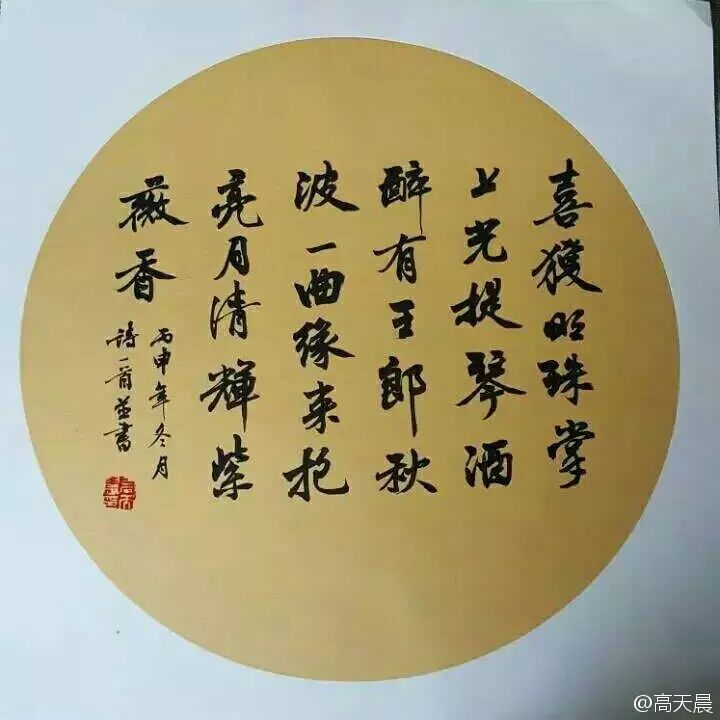 喜獲明珠掌
上光提琴酒
醉有王郎秋
波一曲缘来抱
亮月清輝紫
薇香
丙申年冬月
詩一首並書
@高天晨